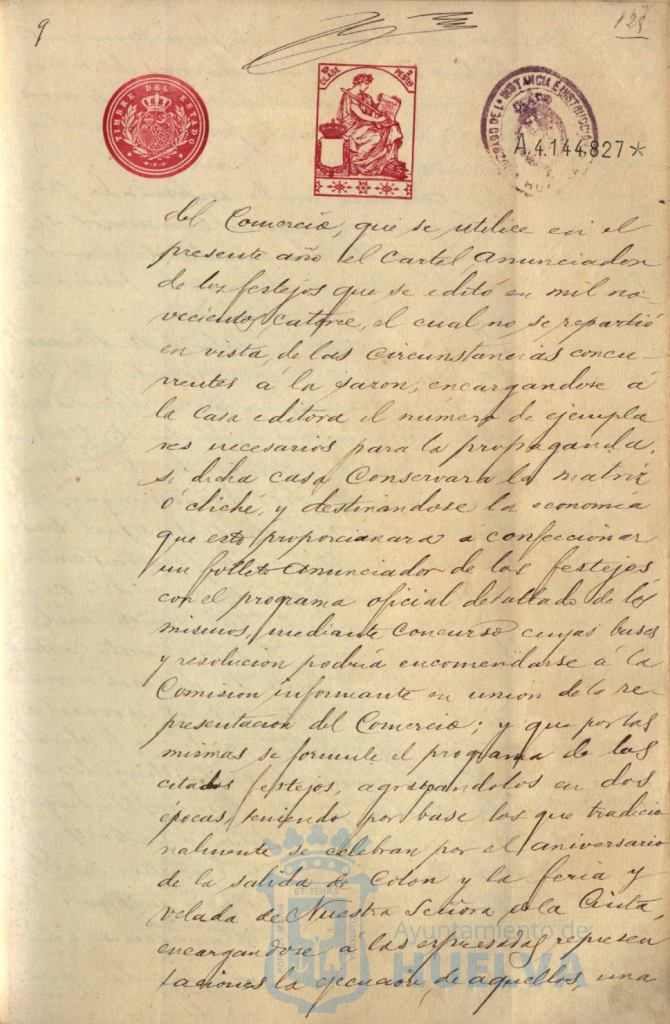 9
123
TIMBRE DEL ESTADO
10ª CLASE
2 PESETAS
JUZGADO DE 1ª INSTANCIA E INSTRUCCION
HU
A.4.144.827*
del Comercio, que se utilice en el
presente año el cartel anunciador
de los festejos que se editó en mil no-
vecientos catorce, el cual no se repartió
en vista, de las circunstancias concu-
rrentes á la sazon, encargandose á
la Casa editora el número de ejempla
res necesarios para la propaganda,
si dicha casa Conservara la matriz
ó cliché, y destinandose la economia
que esto proporcionara á confeccionar
un folleto anunciador de los festejos
con el programa oficial detallado de los
mismos, mediante Concurso cuyas bases
y resolucion podria encomendarse á la
Comision informante en union de la re-
presentacion del Comercio; y que por las
mismas se formule el programa de los
citados festejos, agrupandolos en dos
épocas, teniendo por base los que tradicio
nalmente se celebran por el aniversario
de la salida de Colon y la feria y
velada de Nuestra Señora de la Cinta,
encargandose a las expresadas represen
taciones la ejecucion de aquellos, una
Ayuntamiento de
HUELVA